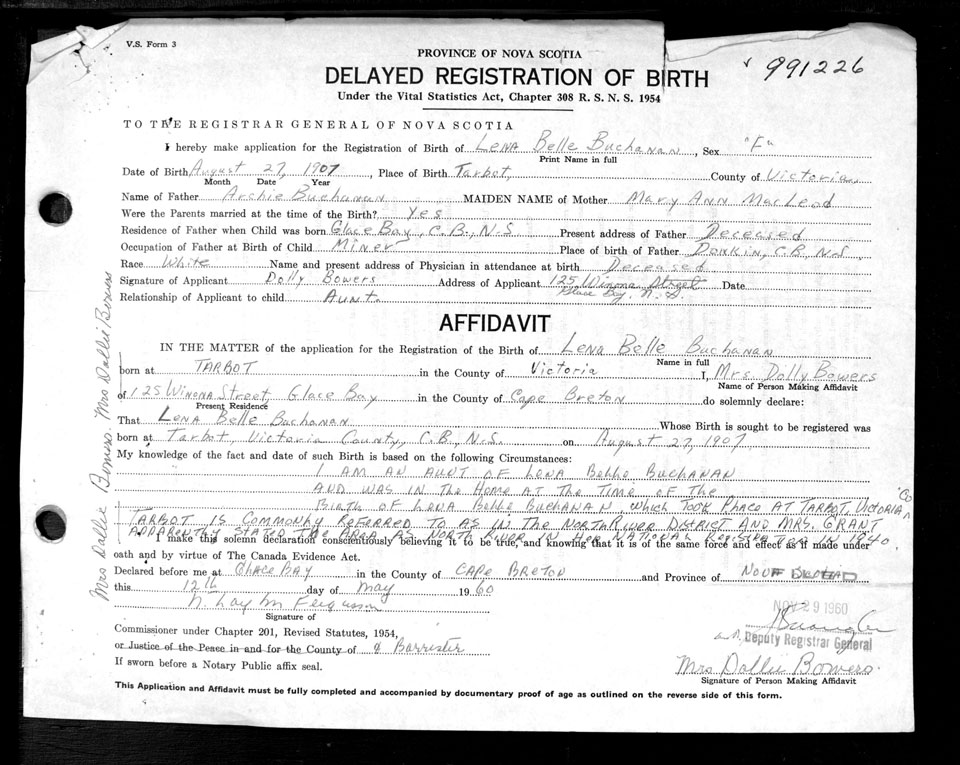 V.S. Form 3
991226
PROVINCE OF NOVA SCOTIA
DELAYED REGISTRATION OF BIRTH
Under the Vital Statistics Act, Chapter 308 R. S. N. S. 1954
TO THE REGISTRAR GENERAL OF NOVA SCOTIA
I hereby make application for the Registration of Birth of Lena Belle Buchanan, Sex "F"
Print Name in full
Date of Birth August 27, 1907, Place of Birth Tarbot, County of Victoria
Month Date Year
Name of Father Archie Buchanan MAIDEN NAME of Mother Mary Ann MacLeod
Were the Parents married at the time of the Birth? Yes
Residence of Father when Child was born Glace Bay, C.B., N.S Present address of Father Deceased
Occupation of Father at Birth of Child Miner Place of birth of Father Donkin, C.B., N.S
Race White Name and present address of Physician in attendance at birth Deceased
Signature of Applicant Dolly Bowers Address of Applicant 125 Winona Street Date
Glace Bay, N.S.
Relationship of Applicant to child Aunt.
AFFIDAVIT
IN THE MATTER of the application for the Registration of the Birth of Lena Belle Buchanan
Name in full
born at TARBOT in the County of Victoria I, Mrs. Dolly Bowers
Name of Person Making Affidavit
of 125 Winona Street, Glace Bay in the County of Cape Breton do solemnly declare:
Present Residence
That Lena Belle Buchanan Whose Birth is sought to be registered was
born at Tarbot, Victoria County, C.B., N.S. on August 27, 1907
My knowledge of the fact and date of such Birth is based on the following Circumstances:
I AM AN AUNT OF LENA Belle BUCHANAN
AND WAS IN the Home AT The TIME OF The
Birth OF LENA Belle BUCHANAN which TOOK Place AT TARBOT, VICTORIA Co
TARBOT IS COMMONLY REFERRED TO AS IN THE NORTH RIVER DISTRICT AND MRS. GRANT
APPARENTLY STATED THE AREA AS NORTH RIVER IN HER NATIONAL REGISTRATION IN 1940.
I make this solemn declaration conscientiously believing it to be true, and knowing that it is of the same force and effect as if made under
oath and by virtue of The Canada Evidence Act.
Declared before me at Glace BAY in the County of CAPE BRETON and Province of NOVA SCOTIA
this 12th day of May 1960
Signature of
NOV 29 1960
Deputy Registrar General
Commissioner under Chapter 201, Revised Statutes, 1954,
or Justice of the Peace in and for the County of & Barrister
If sworn before a Notary Public affix seal.
Mrs Dollie Bowers
Signature of Person Making Affidavit
This Application and Affidavit must be fully completed and accompanied by documentary proof of age as outlined on the reverse side of this form.
Mrs Dollie Bowers. Mrs Dollie Bowers